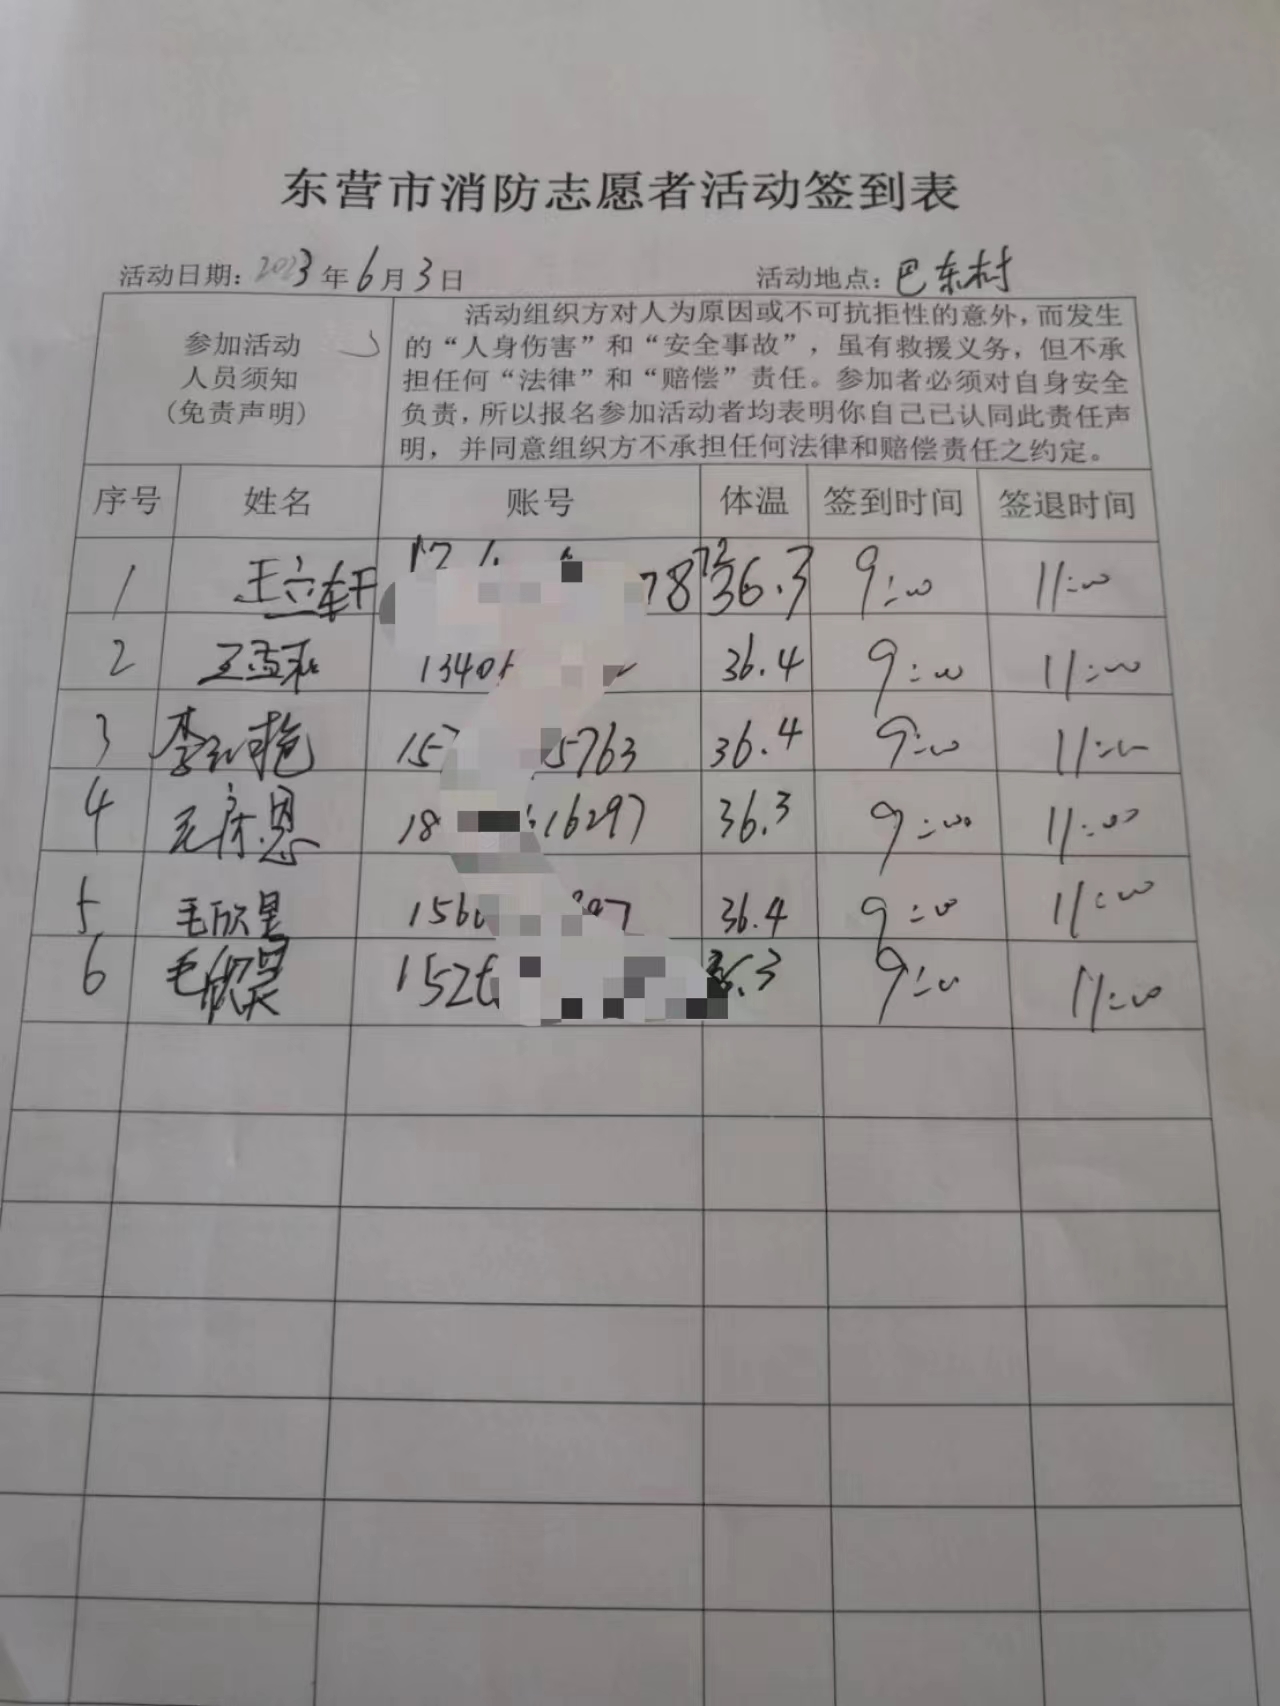 东营市消防志愿者活动签到表
活动日期：2023年6月3日 活动地点：巴东村
参加活动
人员须知
（免责声明）
活动组织方对人为原因或不可抗拒性的意外，而发生
的“人身伤害”和“安全事故”，虽有救援义务，但不承
担任何“法律”和“赔偿”责任。参加者必须对自身安全
负责，所以报名参加活动者均表明你自己已认同此责任声
明，并同意组织方不承担任何法律和赔偿责任之约定。
序号 姓名 账号 体温 签到时间 签退时间
1 王立轩 36.3 9:00 11:00
2 1340 36.4 9:00 11:00
3 15 5763 36.4 9:00 11:00
4 18 16297 36.3 9:00 11:00
5 毛欣昱 156 97 36.4 9:00 11:00
6 毛欣昊 152 36.3 9:00 11:00